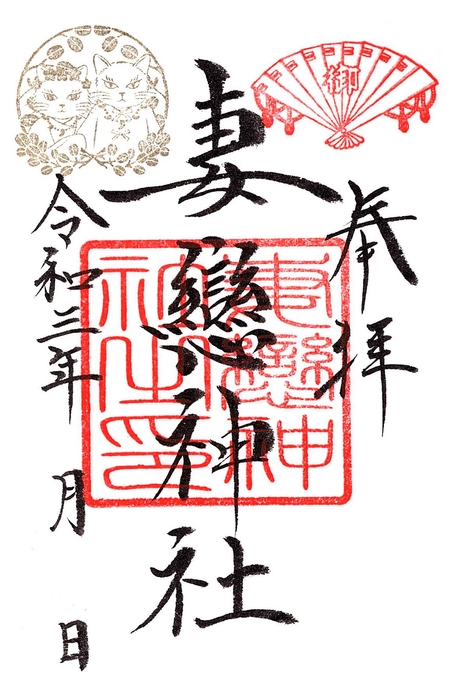 奉拝
御
妻戀神社
妻戀神社之印
令和三年 月 日